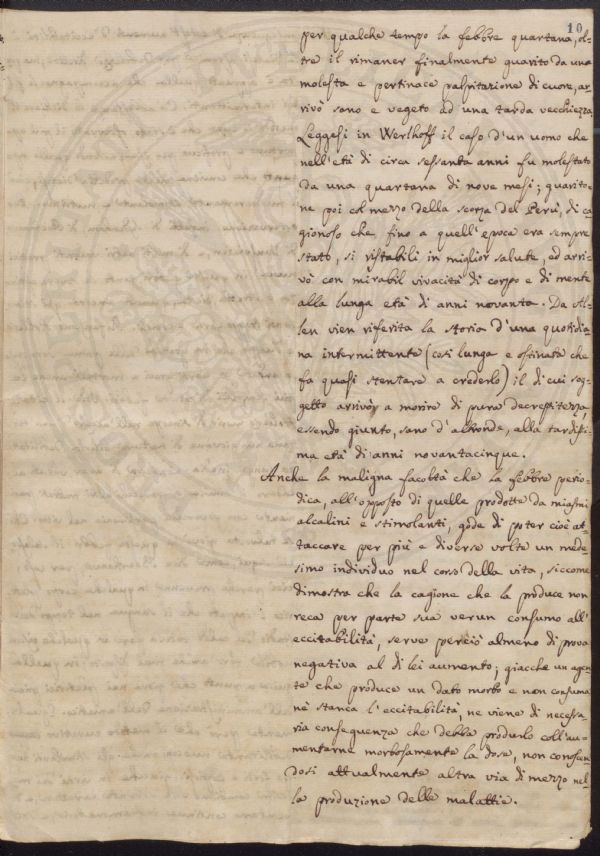 10.
per qualche tempo la febbre quartana, ol-
tre il rimaner finalmente guarito da una
molesta e pertinace palpitazione di cuore, ar-
rivò sano e vegeto ad una tarda vecchiezza.
Leggesi in Werlhoff il caso d'un uomo che
nell'età di circa sessanta anni fu molestato
da una quartana di nove mesi; guarito-
ne poi col mezzo della scorza del Perù, di ca-
gionoso che fino a quell'epoca era sempre
stato, si ristabilì in miglior salute, ed arri-
vò con mirabil vivacità di corpo e di mente
alla lunga età di anni novanta. Da Al-
len vien riferita la storia d'una quotidia-
na intermittente (così lunga e ostinata che
fa quasi stentare a crederlo) il di cui sog-
getto arrivò a morire di pura decrepitezza,
essendo giunto, sano d'altronde, alla tardissi-
ma età di anni novantacinque.
Anche la maligna facoltà che la febbre perio-
dica, all'opposto di quelle prodotte da miasmi
alcalini e stimolanti, gode di poter cioè at-
taccare per più e diverse volte un mede-
simo individuo nel corso della vita, siccome
dimostra che la cagione che la produce non
reca per parte sua verun consumo all'
eccitabilità, serve perciò almeno di prova
negativa al di lei aumento; giacchè un agen-
te che produce un dato morbo e non consuma
nè stanca l'eccitabilità, ne viene di necessa-
ria conseguenza che debba produrlo coll'au-
mentarne morbosamente la dose, non conoscen-
dosi attualmente altra via di mezzo nel-
la produzione delle malattie.